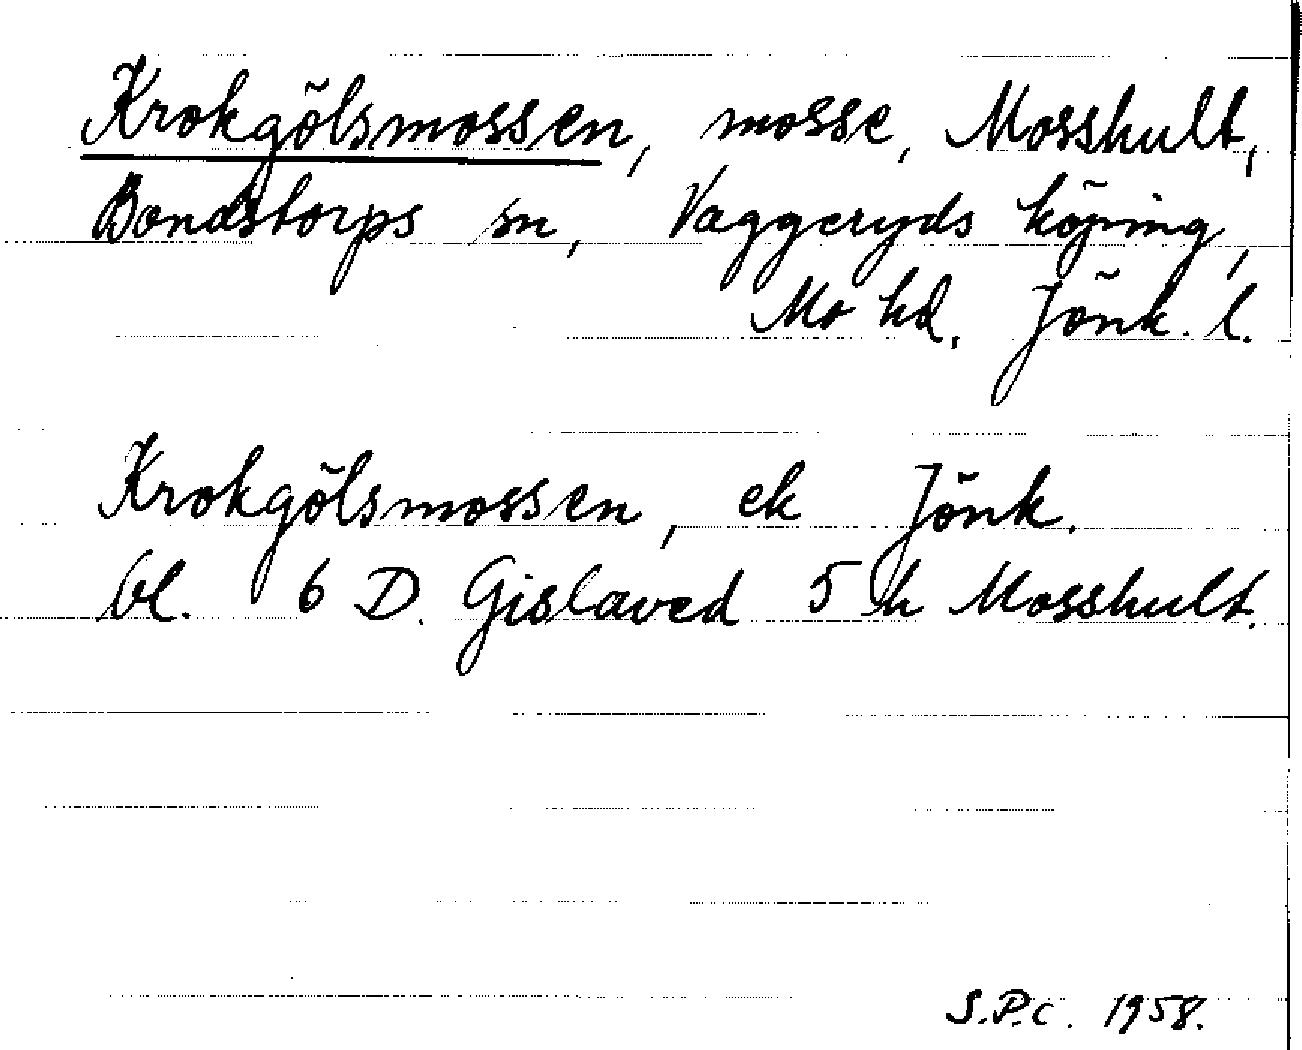 Krokgölsmossen, mosse, Mosshult,
Bondstorps sn, Vaggeryds köping,
Mo hd. Jönk. l.
Krokgölsmossen, ek Jönk.
bl. 6 D. Gislaved 5 h Mosshult.
S.P.c. 1958.